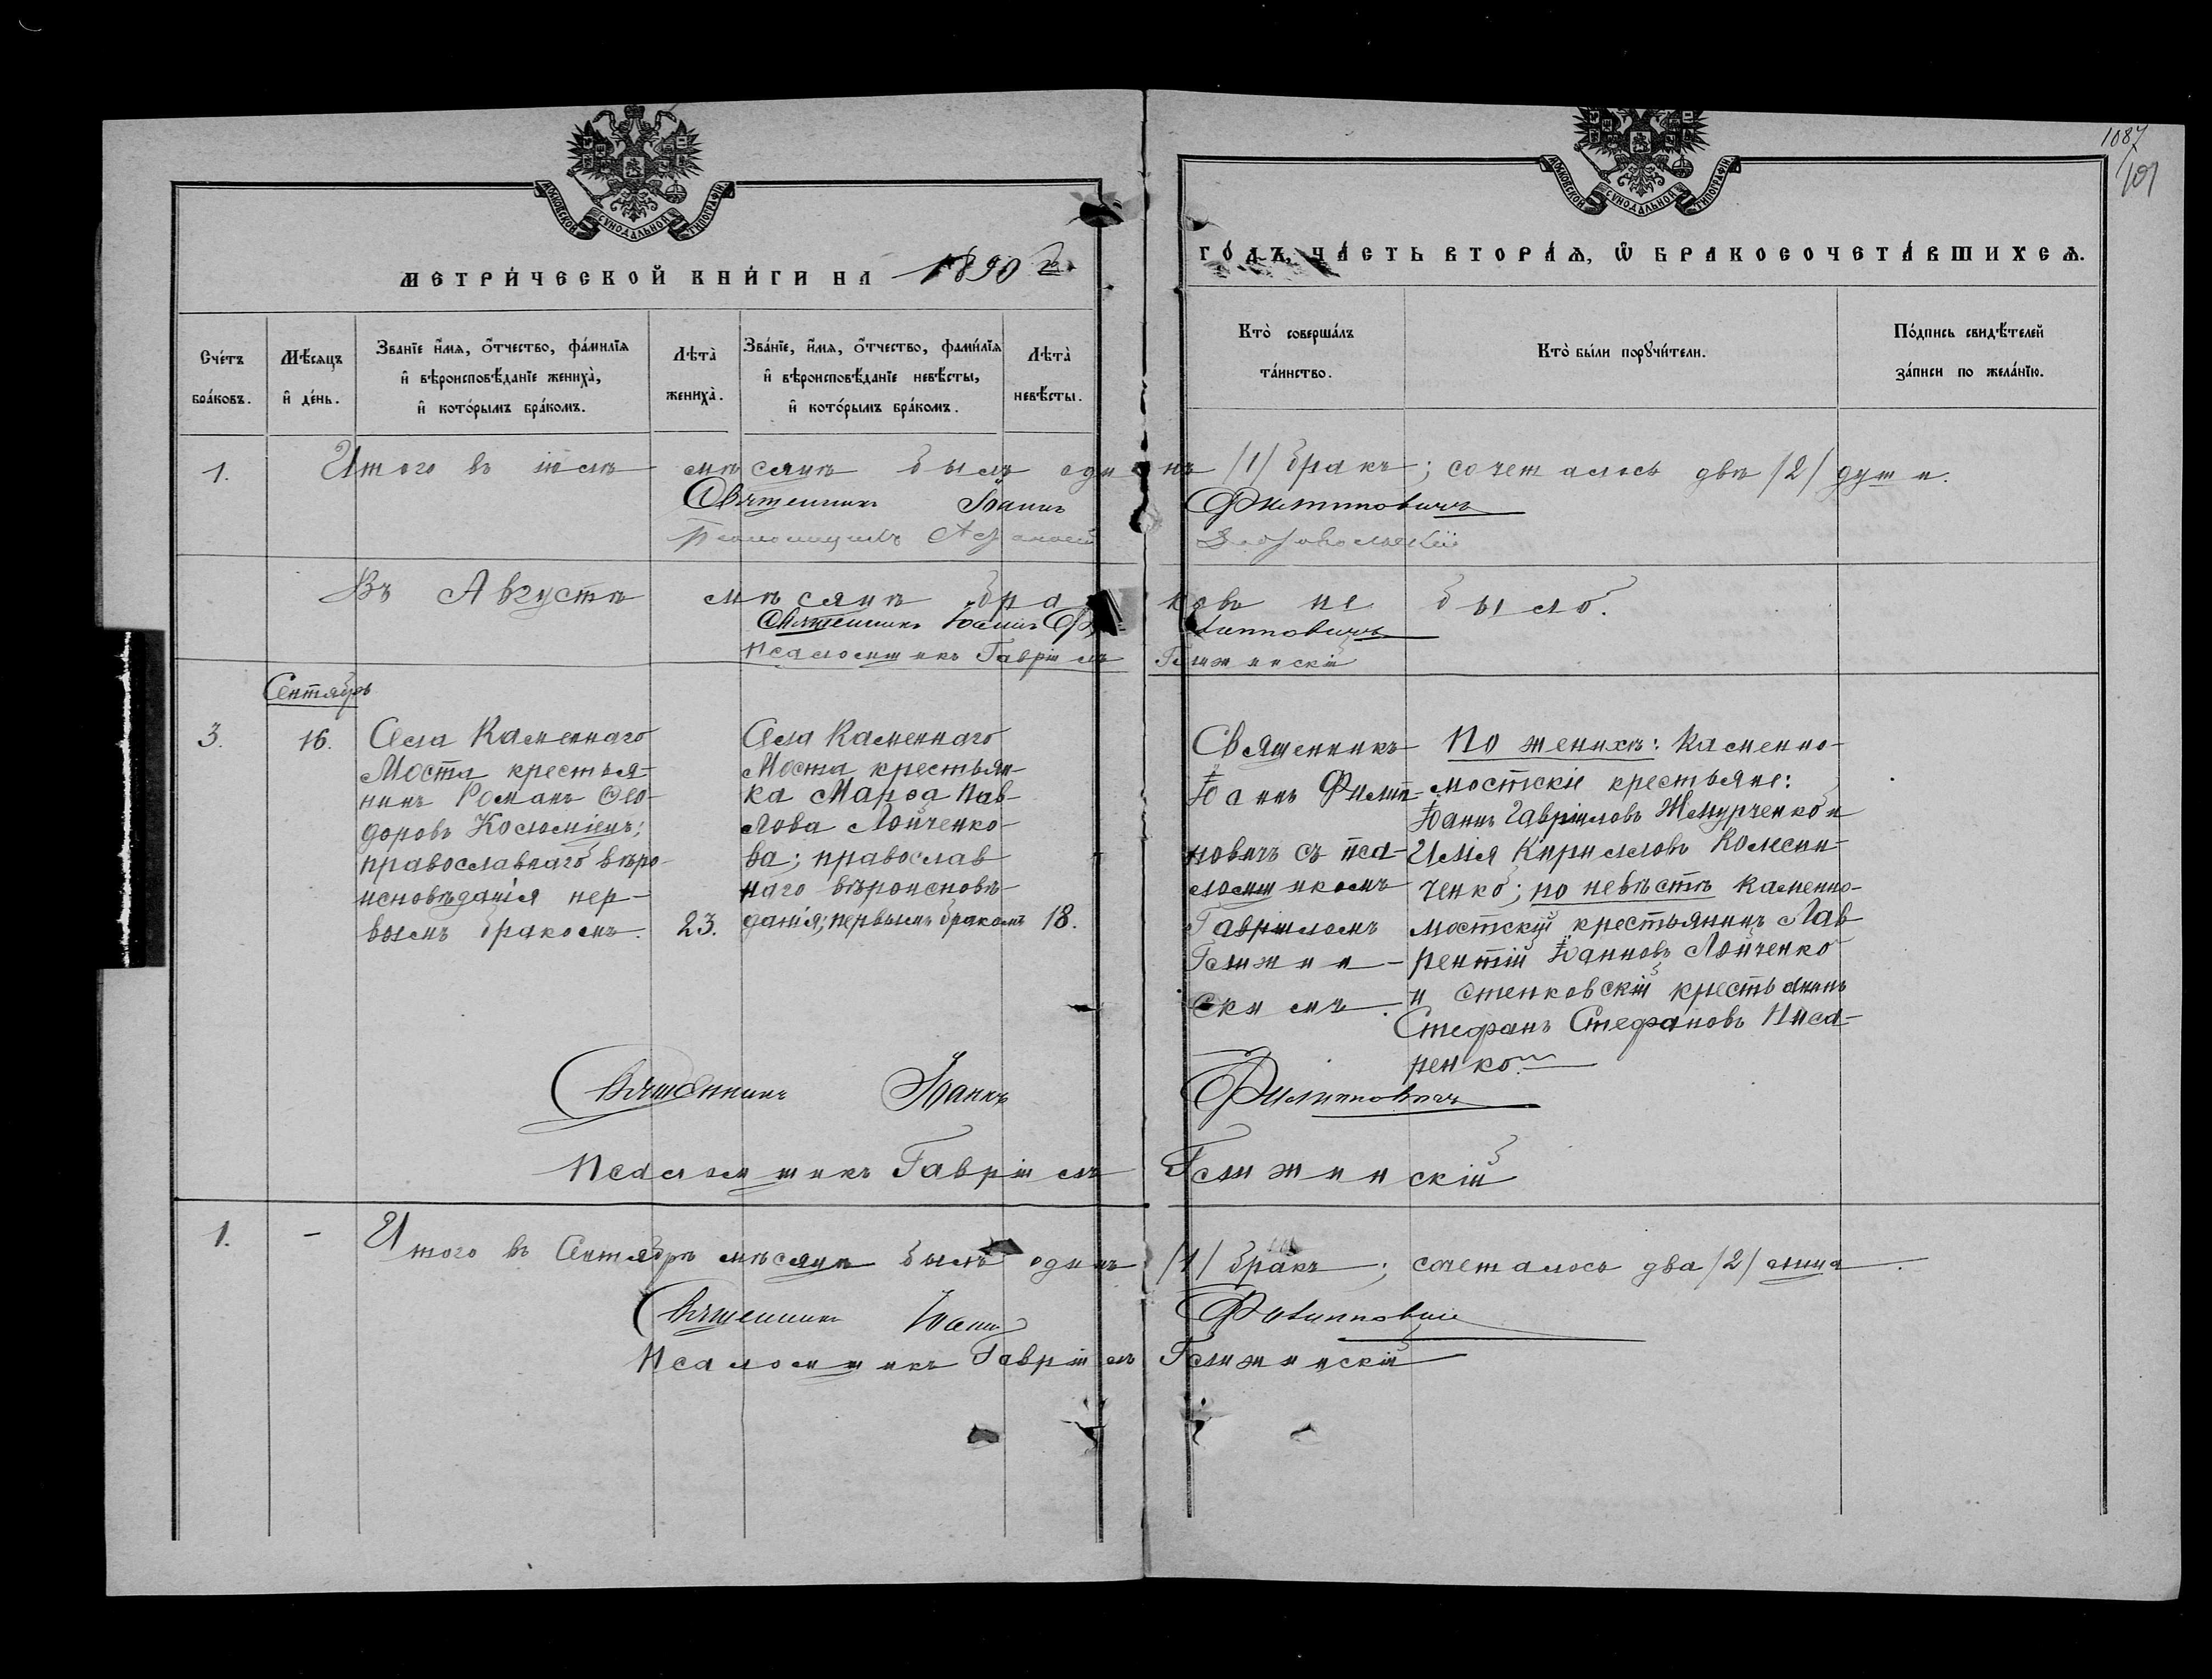 1087
101
МОСКОВСКОЙ СѴНОДАЛЬНОЙ ТИПОГРАФІИ
МОСКОВСКОЙ СѴНОДАЛЬНОЙ ТИПОГРАФІИ
МЕТРИ́ЧЕСКОЙ КНИ́ГИ НА 1890 й
ГО́ДЪ, ЧА́СТЬ ВТОРА́Ѧ, Ѿ БРАКОСОЧЕТА́ВШИХСѦ.
Сче́тъ бра́ковъ.
Мѣ́сяцъ и҆ де́нь.
Зва́нїе и҆́мѧ, ѻ҆́тчество, фамѝлїѧ
и҆ вѣроисповѣ́данїе женихà,
и҆ кото́рымъ бра́комъ.
Лѣтà женихà.
Зва́нїе, и҆́мѧ, ѻ҆́тчество, фами́лїѧ
и҆ вѣроисповѣ́данїе невѣ́сты,
и҆ кото́рымъ бра́комъ.
Лѣтà невѣ́сты.
Кто̀ соверша́лъ
та́инство.
Кто̀ бы́ли порꙋчи́тели.
По́дпись свидѣ́телей
за́писи по жела́нїю.
1. Итого въ іюлѣ мѣсяцѣ былъ одинъ /1/ бракъ; сочеталось двѣ /2/ души.
Священникъ Іоаннъ Филипповичъ
Псаломщикъ
Въ Августѣ мѣсяцѣ браковъ не было.
Священникъ Іоаннъ Филипповичъ
Псаломщикъ Гавріилъ Ближинскій
Сентябрь
3.
16.
Села Каменнаго
Моста крестья-
нинъ Романъ Ѳео-
доровъ Коломіецъ;
православнаго вѣро-
исповѣданія пер-
вымъ бракомъ.
23.
Села Каменнаго
Моста крестьян-
ка Марѳа Пав-
лова Лойченко-
ва; православ
наго вѣроисповѣ-
данія; первымъ бракомъ
18.
Священникъ
Іоаннъ Филип-
повичъ съ пса-
ломщикомъ
Гавріиломъ
Ближин-
скимъ.
По женихѣ: Каменно-
мостскіе крестьяне:
Іоаннъ Гавріиловъ Жмурченко и
Илія Кирилловъ Колесни-
ченко; по невѣстѣ Каменно-
мостскій крестьянинъ Лав
рентій Іоанновъ Лойченко
и Стенковскій крестьянинъ
Стефанъ Стефановъ Писа-
ренко.
Священникъ Іоаннъ Филипповичъ
Псаломщикъ Гавріилъ Ближинскій
1. - Итого въ Сентябрѣ мѣсяцѣ былъ одинъ /1/ бракъ; сочеталось два /2/ лица.
Священникъ Іоаннъ Филипповичъ
Псаломщикъ Гавріилъ Ближинскій